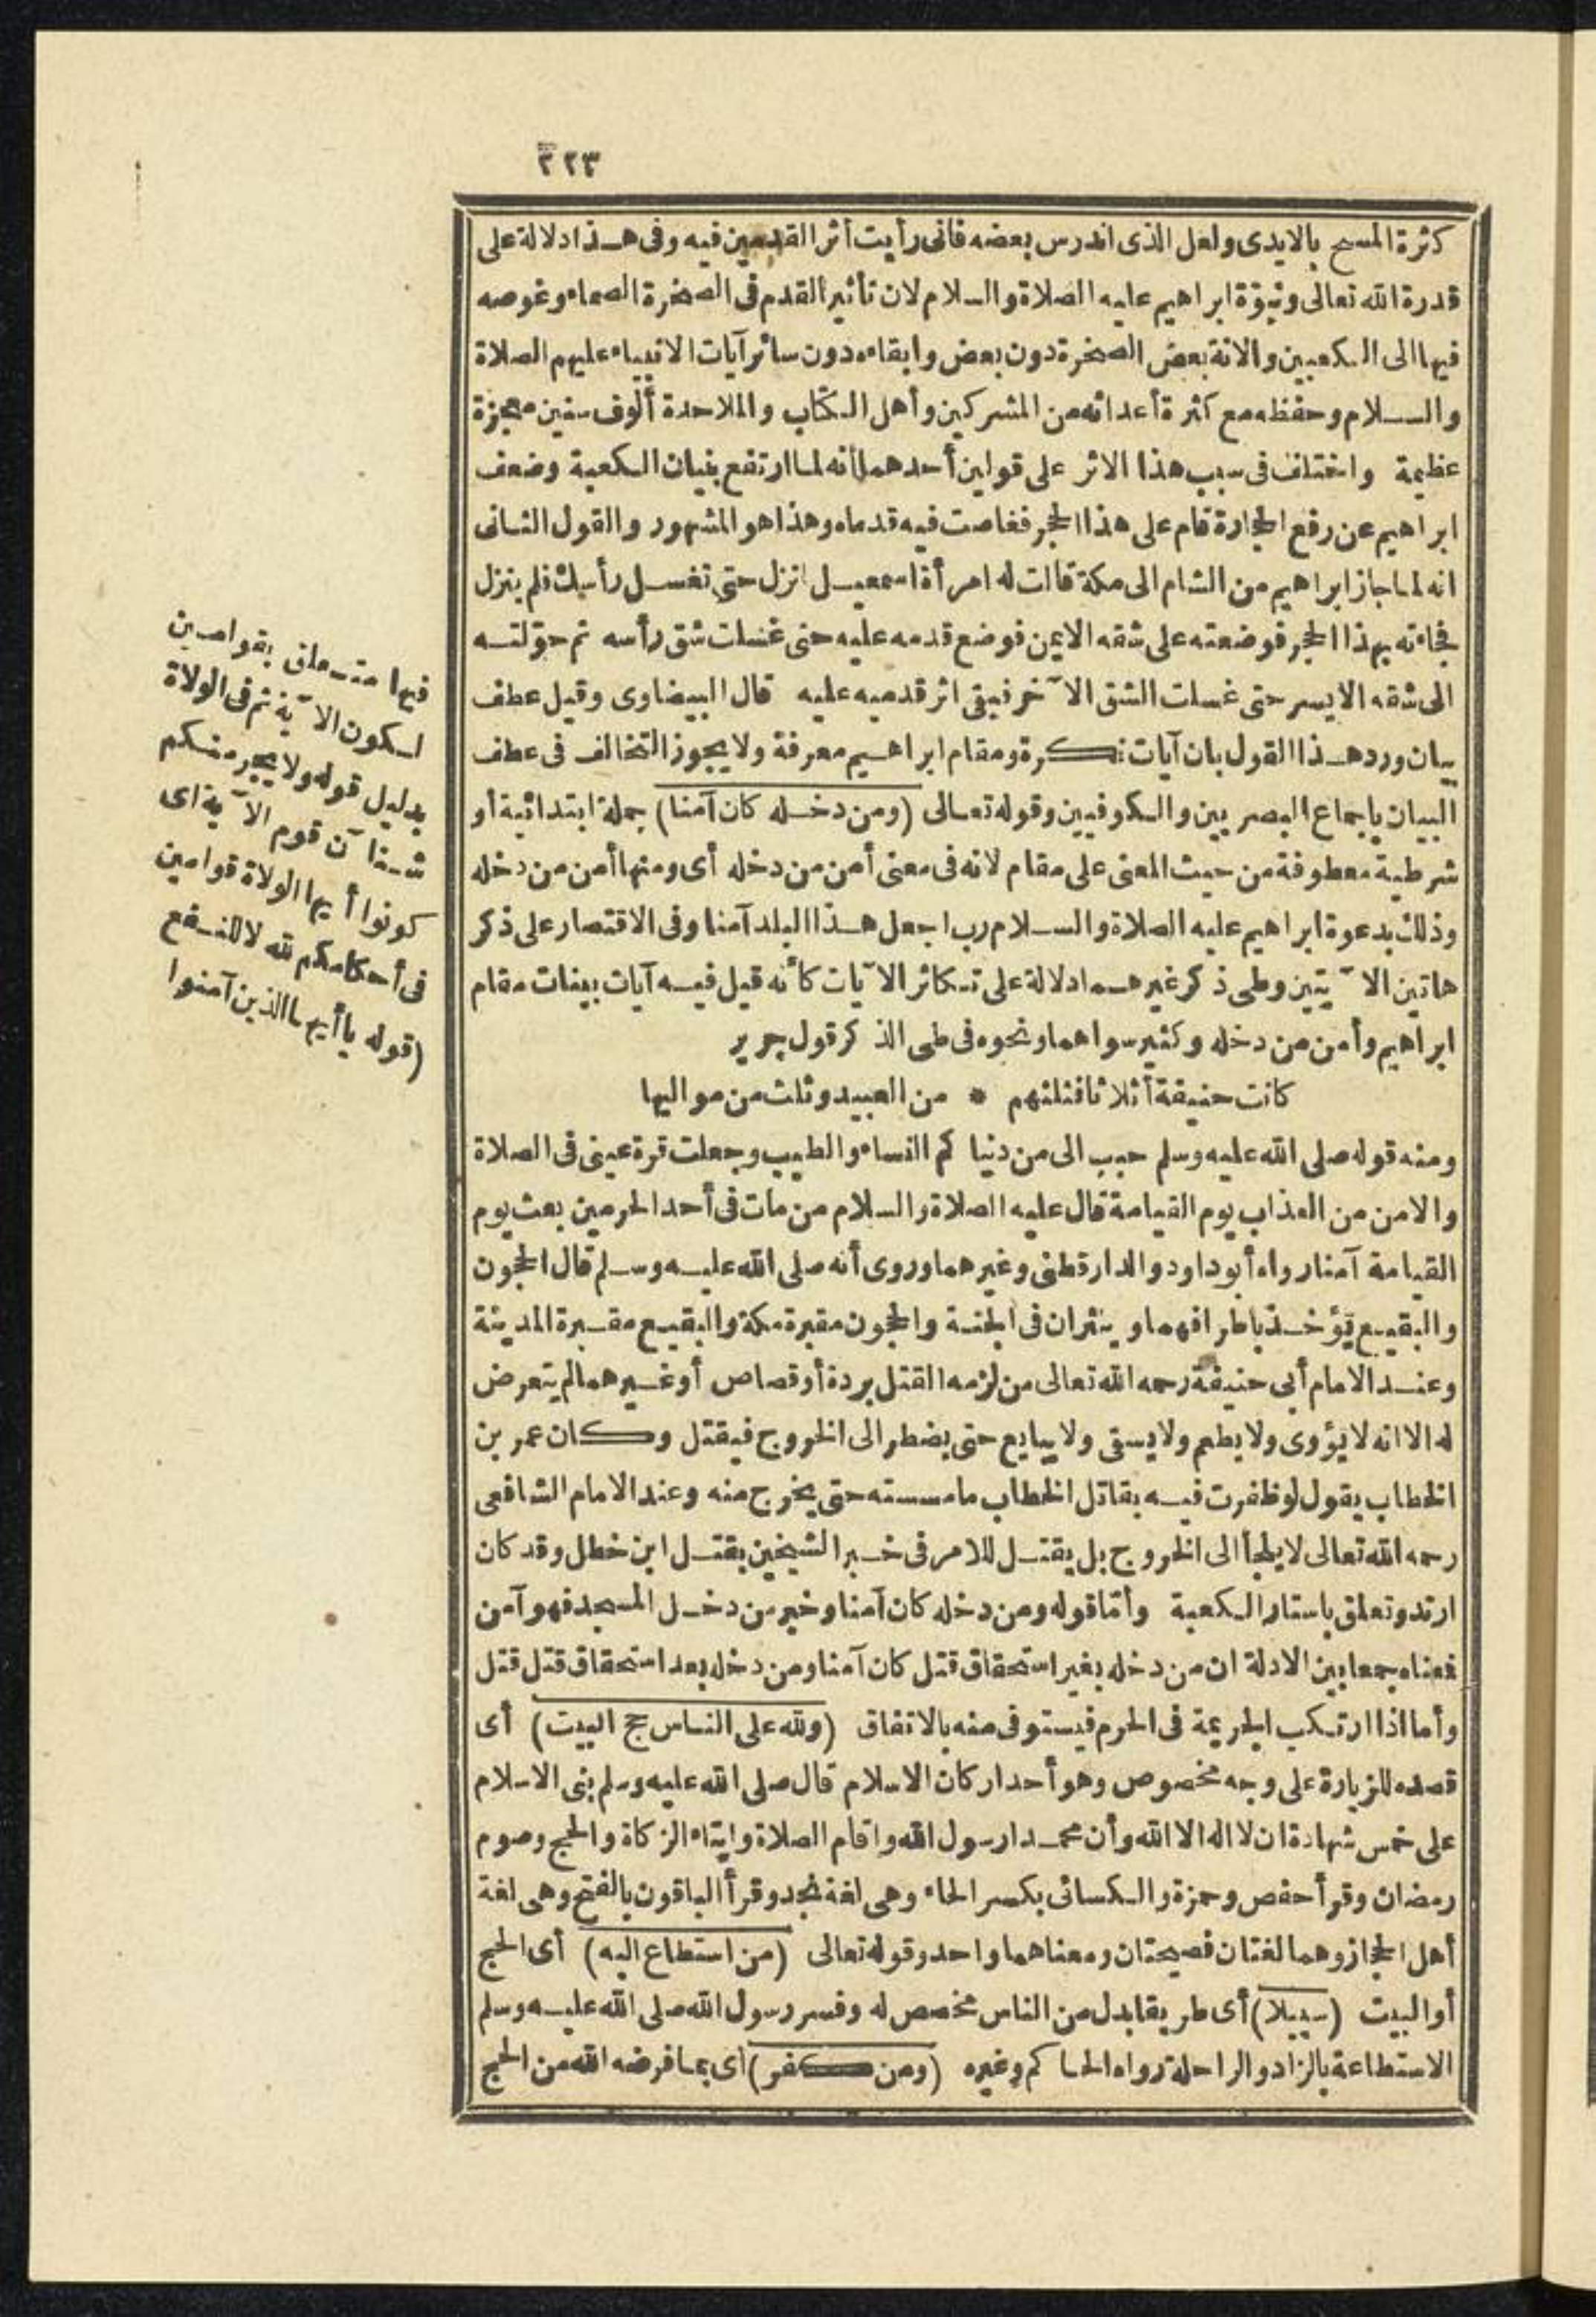 ٢٢٣
كثرة المسح بالايدى ولعل الذى اندرس بعضه فانى رأيت أثر القدمين فيه وفى هذا دلالة على
قدرة الله تعالى ونبوّة ابراهيم عليه الصلاة والسلام لان تأثير القدم فى الصخرة الصماء وغوصه
فيها الى الكعبين والانة بعض الصخرة دون بعض وابقاءه دون سائر آيات الانبياء عليهم الصلاة
والسلام وحفظه مع كثرة أعدائه من المشركين وأهل الكتاب والملاحدة ألوف سنين معجزة
عظيمة واختلف فى سبب هذا الاثر على قولين أحدهما أنه لما ارتفع بنيان الكعبة وضعف
ابراهيم عن رفع الحجارة قام على هذا الحجر فغاصت فيه قدماه وهذا هو المشهور والقول الثانى
انه لما جاز ابراهيم من الشام الى مكة قالت له امرأة اسمعيل انزل حتى تغسل رأسك فلم ينزل
فجاءته بهذا الحجر فوضعته على شقه الايمن فوضع قدمه عليه حتى غسلت شق رأسه ثم حوّلته
الى شقه الايسر حتى غسلت الشق الآخر فبقى اثر قدميه عليه قال البيضاوى وقيل عطف
بيان ورد هذا القول بان آيات نكرة ومقام ابراهيم معرفة ولا يجوز التخالف فى عطف
البيان باجماع البصريين والكوفيين وقوله تعالى (ومن دخله كان آمنا) جملة ابتدائية أو
شرطية معطوفة من حيث المعنى على مقام لانه فى معنى أمن من دخله أى ومنها أمن من دخله
وذلك بدعوة ابراهيم عليه الصلاة والسلام رب اجعل هذا البلد آمنا وفى الاقتصار على ذكر
هاتين الآيتين وطى ذكر غيرهما دلالة على تكاثر الآيات كأنه قيل فيه آيات بينات مقام
ابراهيم وأمن من دخله وكثير سواهما ونحوه فى طى الذكر قول جرير
كانت حنيفة أثلاثا فثلثهم * من العبيد وثلث من مواليها
ومنه قوله صلى الله عليه وسلم حبب الى من دنيا كم النساء والطيب وجعلت قرة عينى فى الصلاة
والامن من العذاب يوم القيامة قال عليه الصلاة والسلام من مات فى أحد الحرمين بعث يوم
القيامة آمنا رواه أبو داود والدارقطنى وغيرهما وروى أنه صلى الله عليه وسلم قال الحجون
والبقيع يؤخذ باطرافهما وينثران فى الجنة والحجون مقبرة مكة والبقيع مقبرة المدينة
وعند الامام أبى حنيفة رحمه الله تعالى من لزمه القتل بردة أو قصاص أو غيرهما لم يتعرض
له الا انه لا يؤوى ولا يطعم ولا يسقى ولا يبايع حتى يضطر الى الخروج فيقتل وكان عمر بن
الخطاب يقول لو ظفرت فيه بقاتل الخطاب ما مسسته حتى يخرج منه وعند الامام الشافعى
رحمه الله تعالى لا يلجأ الى الخروج بل يقتل للامر فى خبر الشيخين بقتل ابن خطل وقد كان
ارتد وتعلق باستار الكعبة وأمّا قوله ومن دخله كان آمنا وخبر من دخل المسجد فهو آمن
فمعناه جمعا بين الادلة ان من دخله بغير استحقاق قتل كان آمنا ومن دخله بعد استحقاق قتل قتل
وأما اذا ارتكب الجريمة فى الحرم فيستوفى منه بالاتفاق (ولله على الناس حج البيت) أى
قصده للزيارة على وجه مخصوص وهو أحد اركان الاسلام قال صلى الله عليه وسلم بنى الاسلام
على خمس شهادة ان لا اله الا الله وأن محمدا رسول الله واقام الصلاة وايتاء الزكاة والحج وصوم
رمضان وقرأ حفص وحمزة والكسائى بكسر الحاء وهى لغة نجد وقرأ الباقون بالفتح وهى لغة
أهل الحجاز وهما لغتان فصيحتان ومعناهما واحد وقوله تعالى (من استطاع اليه) أى الحج
أو البيت (سبيلا) أى طريقا بدل من الناس مخصص له وفسر رسول الله صلى الله عليه وسلم
الاستطاعة بالزاد والراحلة رواه الحاكم وغيره (ومن كفر) أى بما فرضه الله من الحج
فيها متعلق بقوامين
لكون الآية ثم فى الولاة
بدليل قوله ولا يجرمنكم
شنآن قوم الآية اى
كونوا أيها الولاة قوامين
فى أحكامكم لله لا للنفع
(قوله يا أيها الذين آمنوا